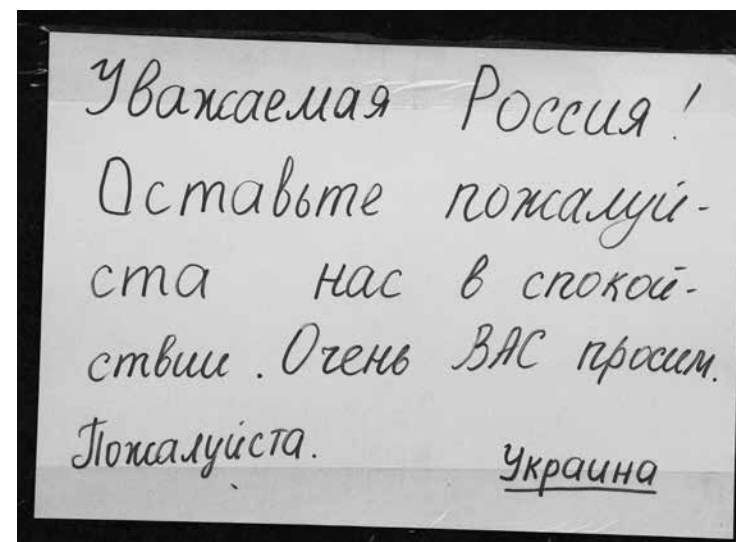 Уважаемая Россия!
Оставьте пожалуй-
ста нас в спокой-
ствии. Очень ВАС просим.
Пожалуйста.
Украина